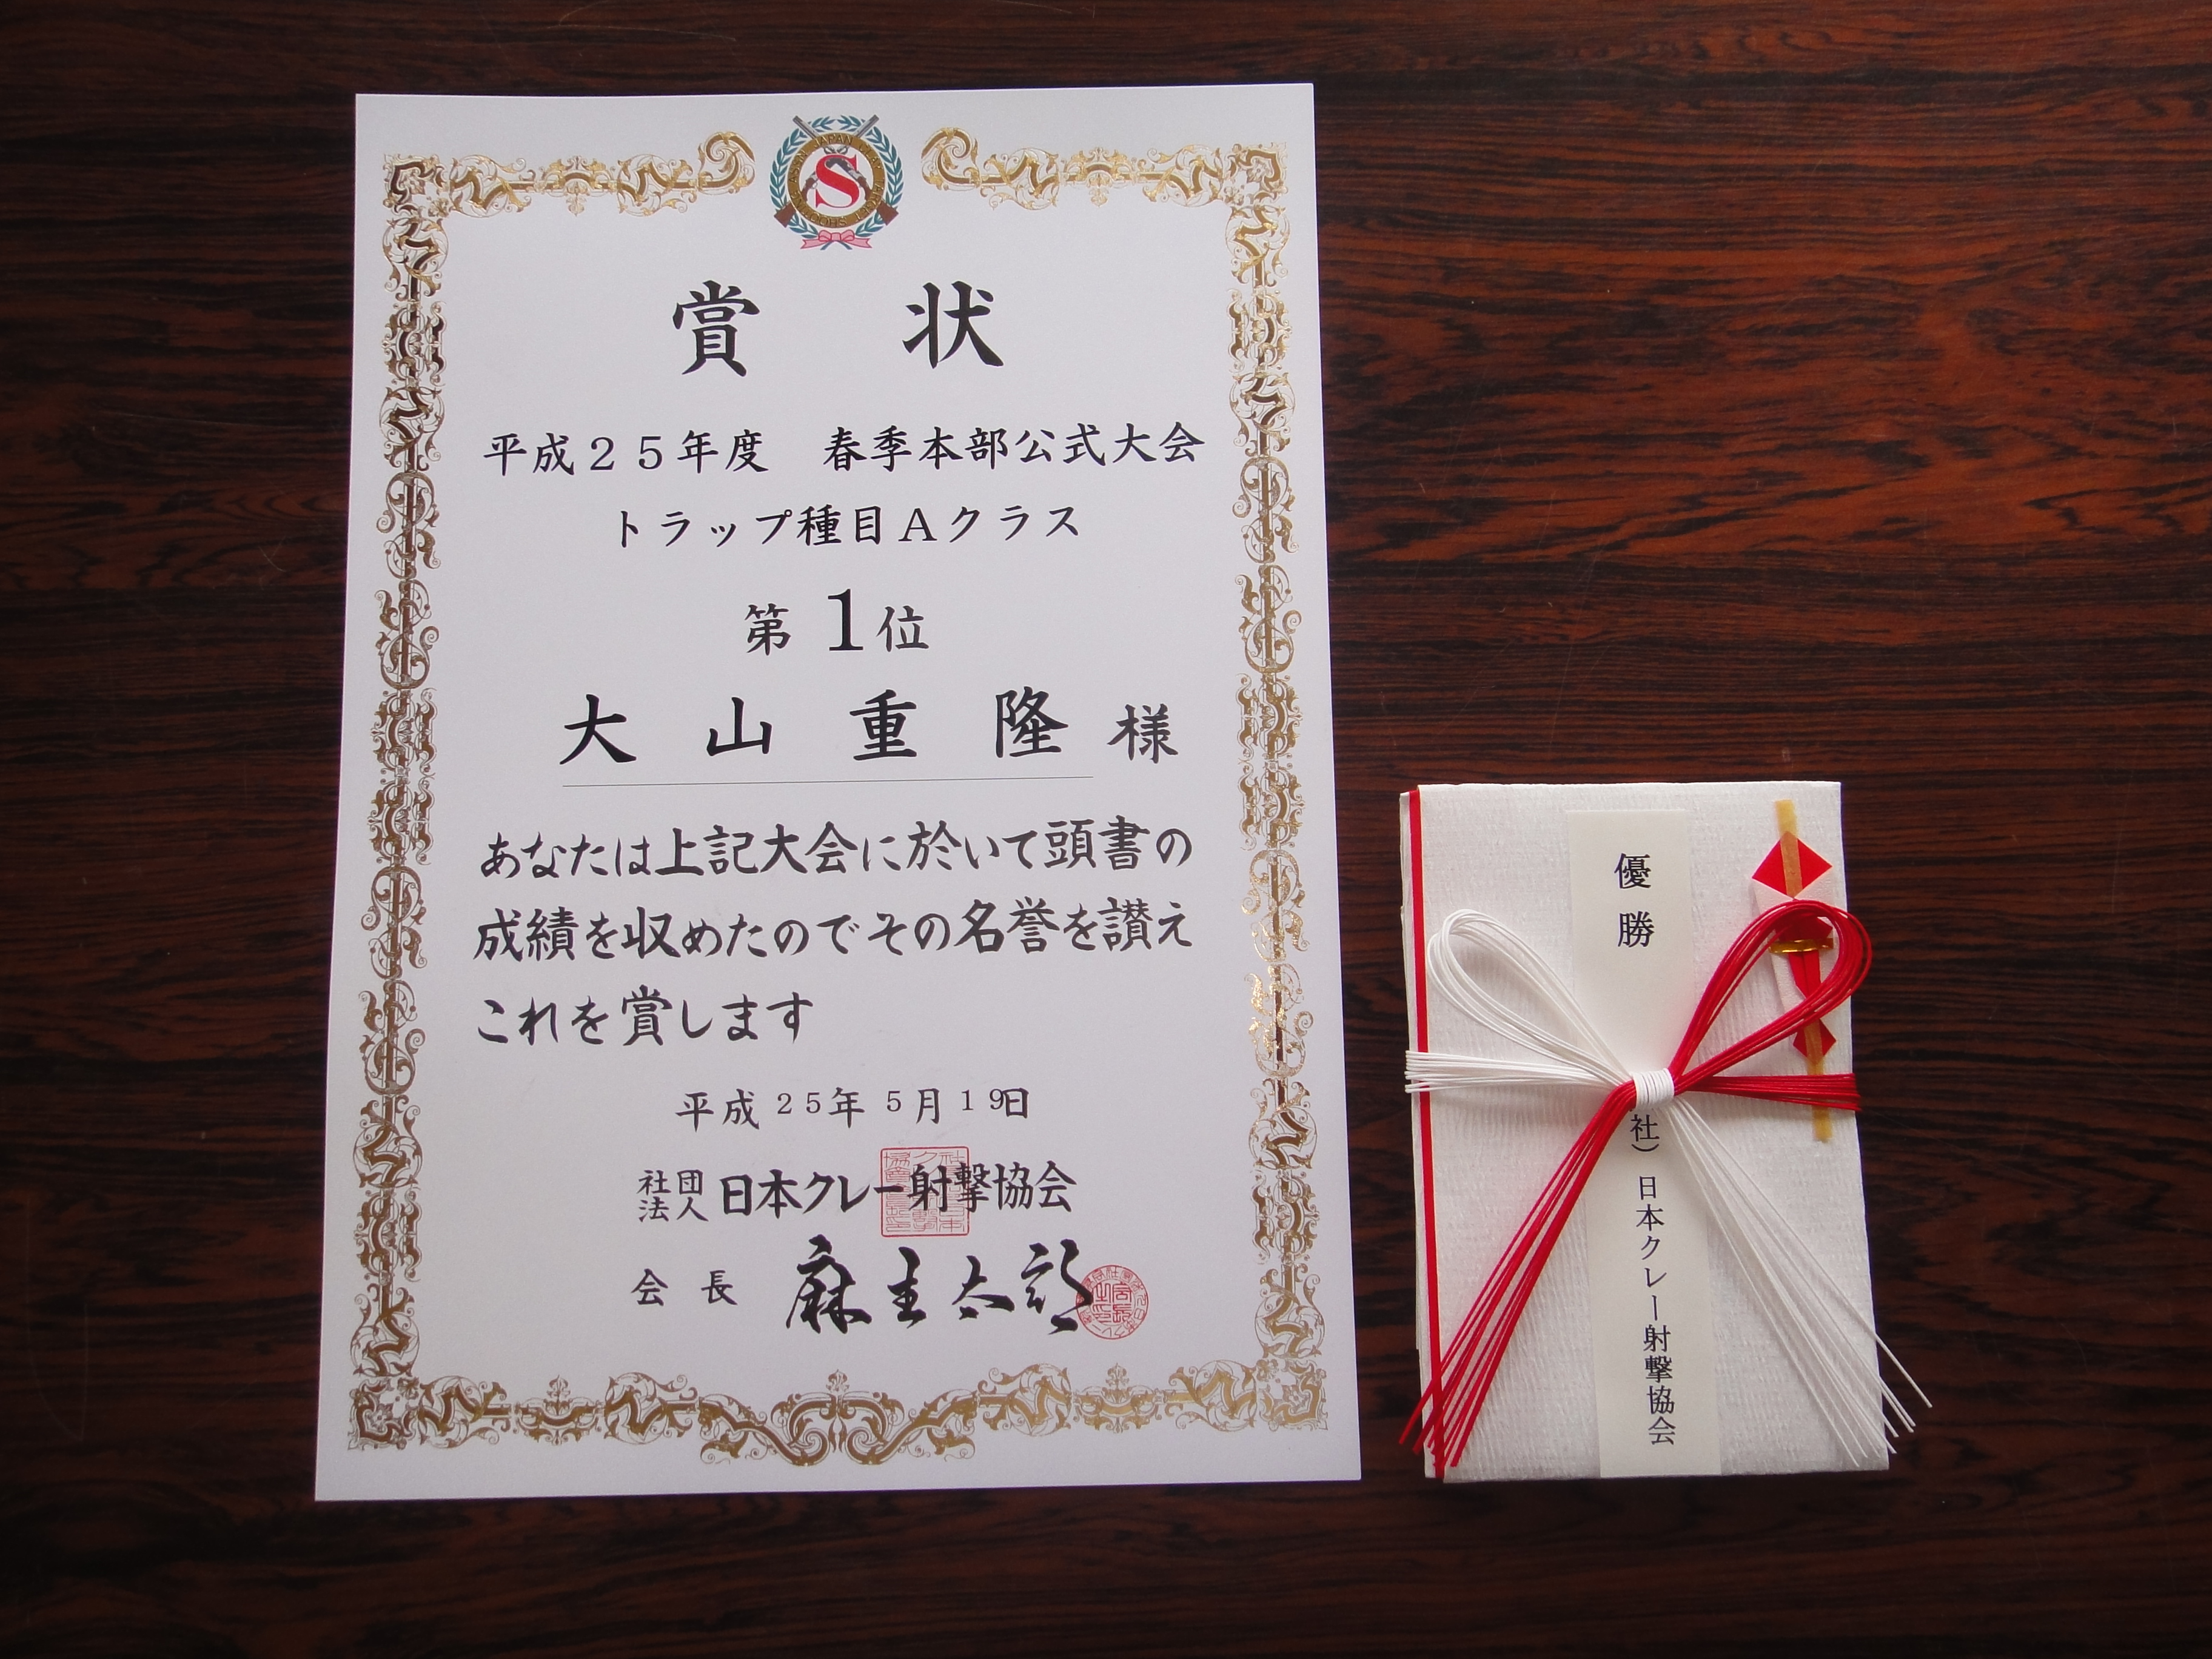 JAPAN
S
賞状
平成25年度 春季本部公式大会
トラップ種目Aクラス
第1位
大山重隆様
あなたは上記大会に於いて頭書の
成績を収めたのでその名誉を讃え
これを賞します
平成25年5月19日
社団法人日本クレー射撃協会
会長 麻生太郎
優勝
社）日本クレー射撃協会